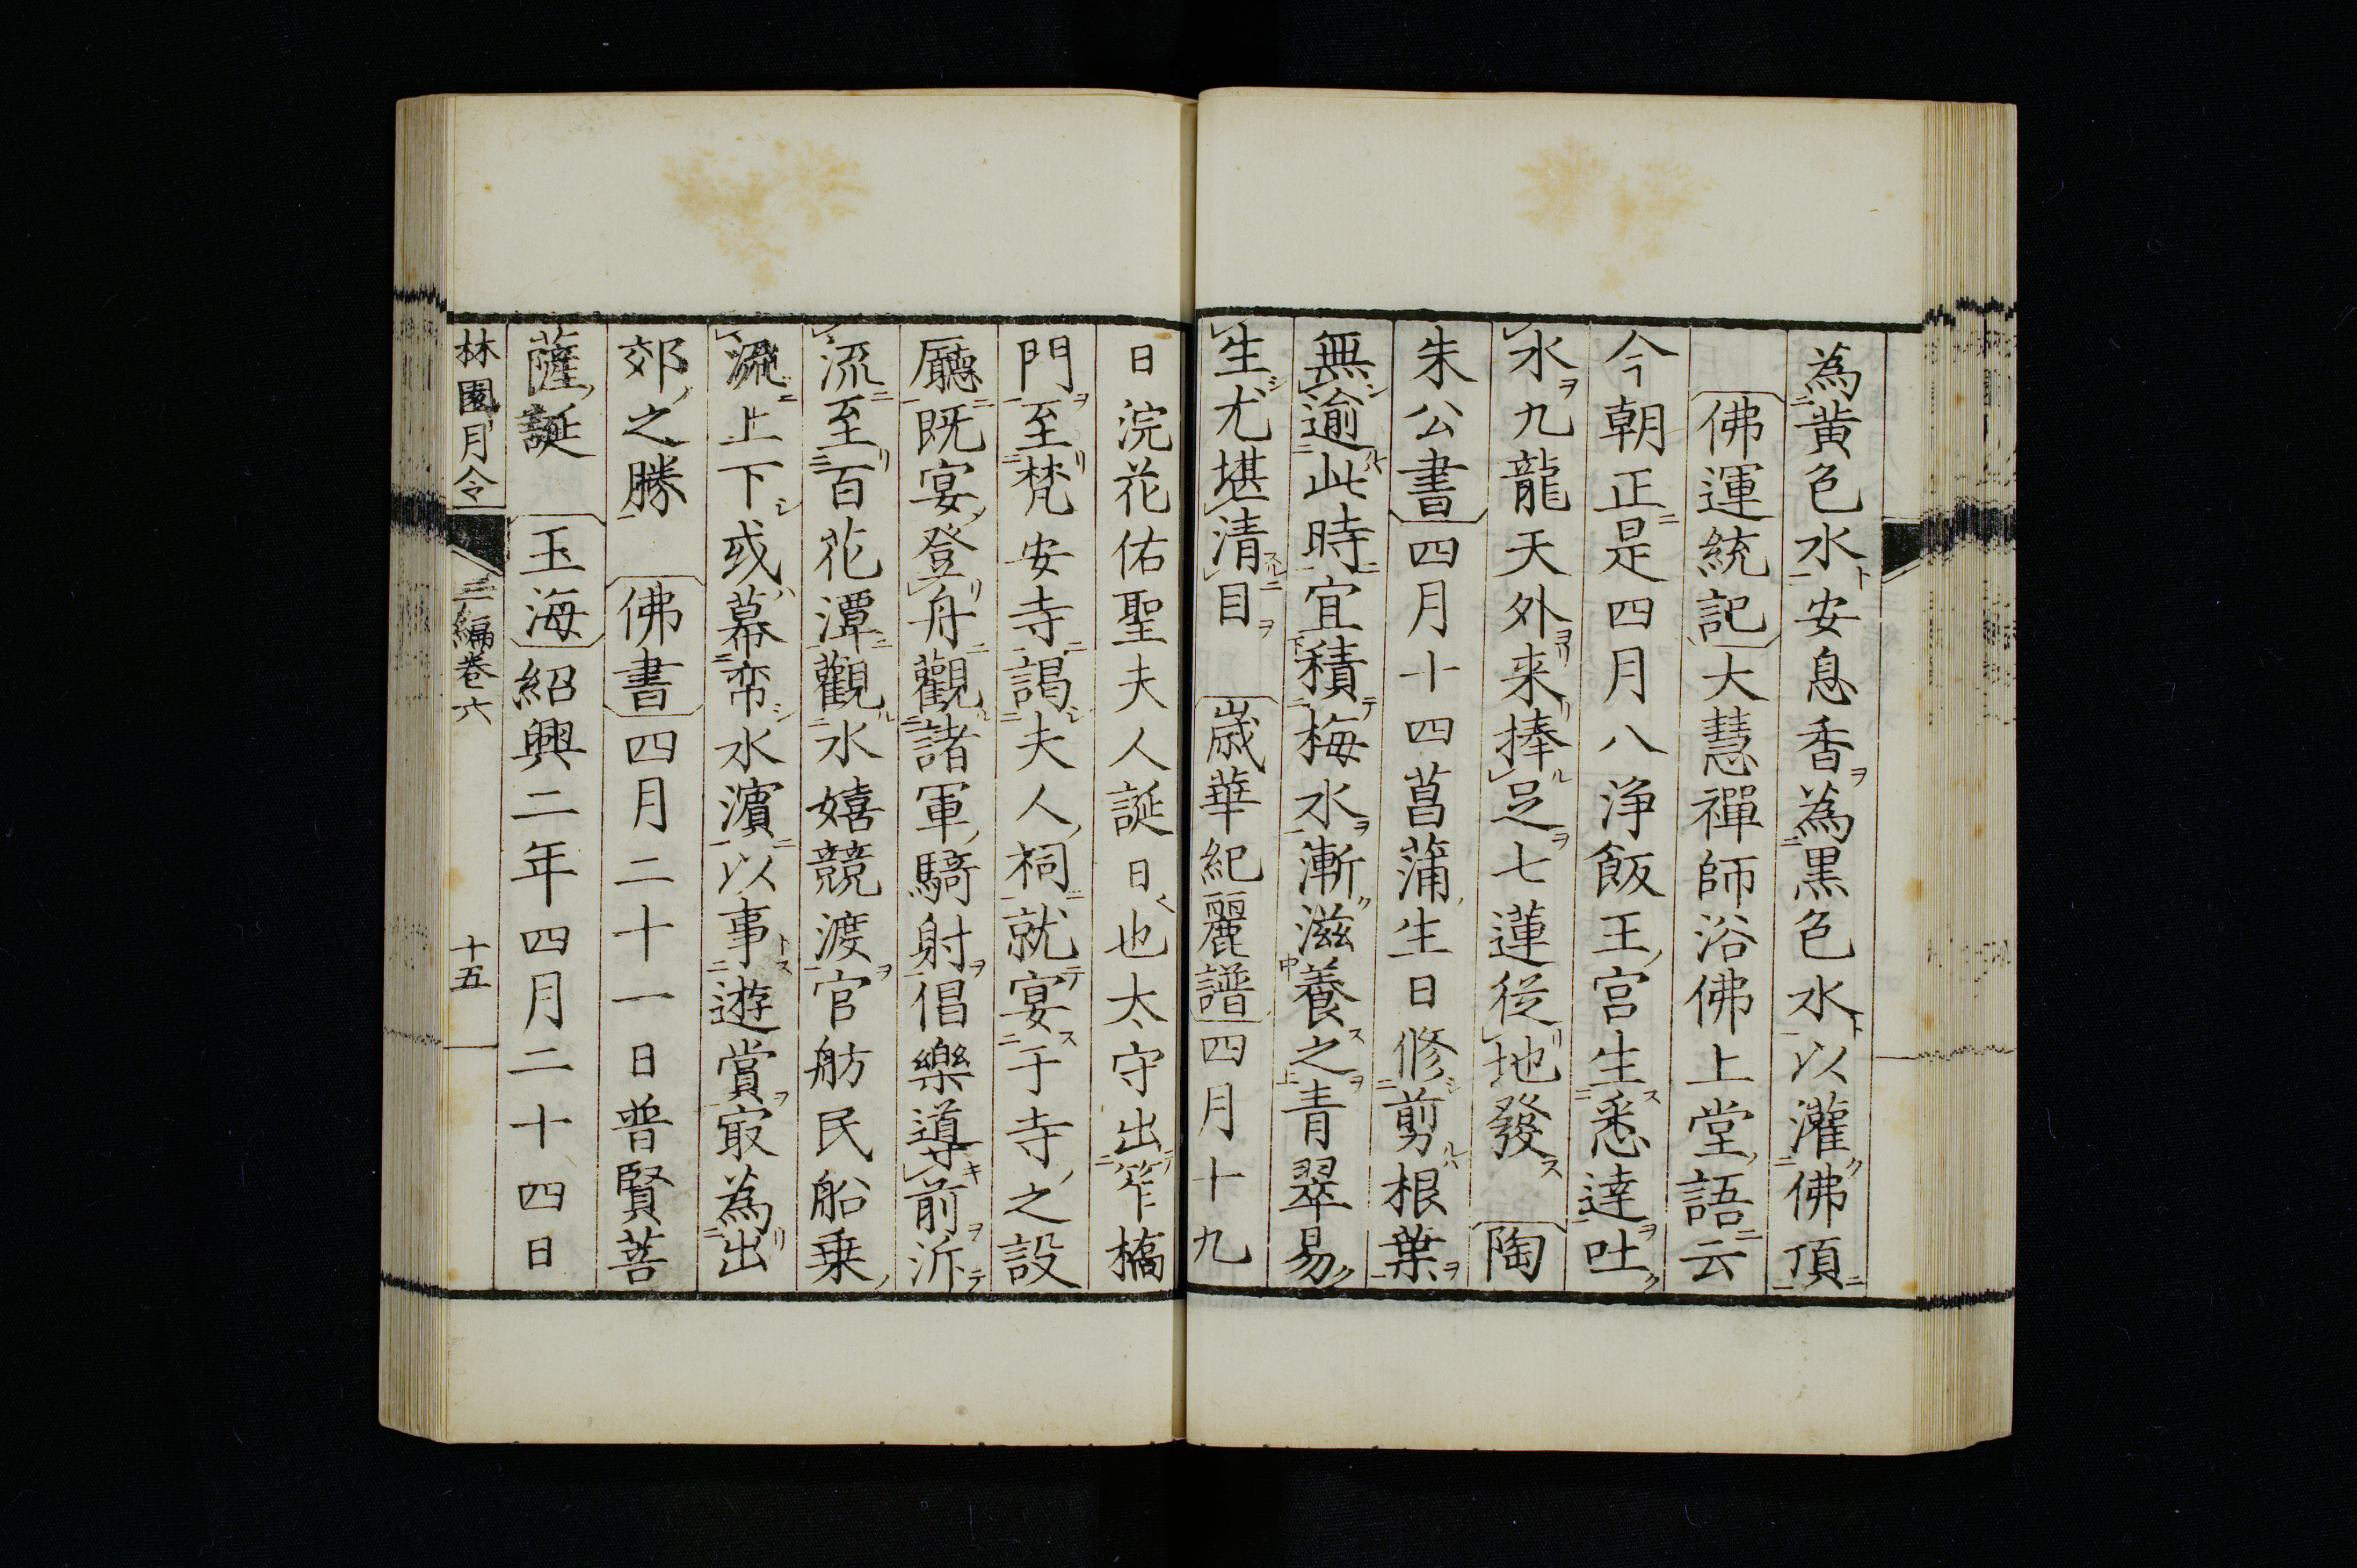 為黄色水安息香為黒色水以灌佛頂
佛運統記大慧禪師浴佛上堂語云
今朝正是四月八浄飯王宮生悉達吐
水九龍天外来捧足七蓮従地發　陶
朱公書四月十四菖蒲生日修剪根葉
無逾此時宜積梅水漸滋養之青翠易
生尤堪清目　歳華紀麗譜四月十九
日浣花佑聖夫人誕日也太守出笮橋
門至梵安寺謁夫人祠就宴于寺之設
廳既宴登舟觀諸軍騎射倡樂導前泝
流至百花潭觀水嬉競渡官舫民船乗
流上下或幕帟水濱以事遊賞㝡為出
郊之勝　佛書四月二十一日普賢菩
薩誕　玉海紹興二年四月二十四日
林園月令　三編巻六　十五